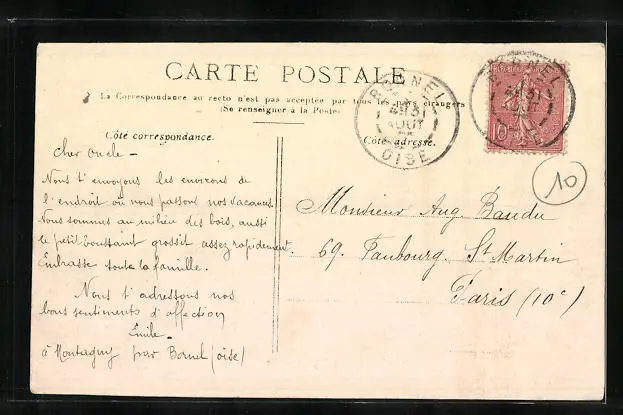 CARTE POSTALE
La Correspondance au recto n'est pas acceptée par tous les pays étrangers
(Se renseigner à la Poste)
Côté correspondance.
Côté adresse.
BORNEL
AOUT
OISE
10
10
Cher Oncle -
Nous t'envoyons les environs de
l'endroit où nous passons nos vacances
Nous sommes au milieu des bois, aussi
le petit boussaint grossit assez rapidement.
Embrasse toute la famille.
Nous t'adressons nos
bons sentiments d'affection
Emile -
à Montagny par Bornel (oise)
Monsieur Aug. Baudu
69. Faubourg. St Martin
Paris (10e)